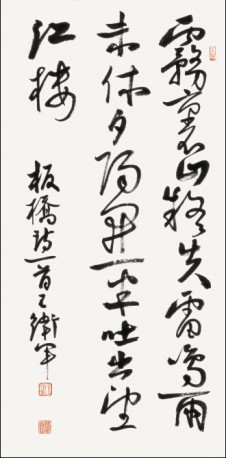 霧裏山疑失雷鳴雨
未休夕陽開一半吐出望
江樓
板橋詩一首王衛軍